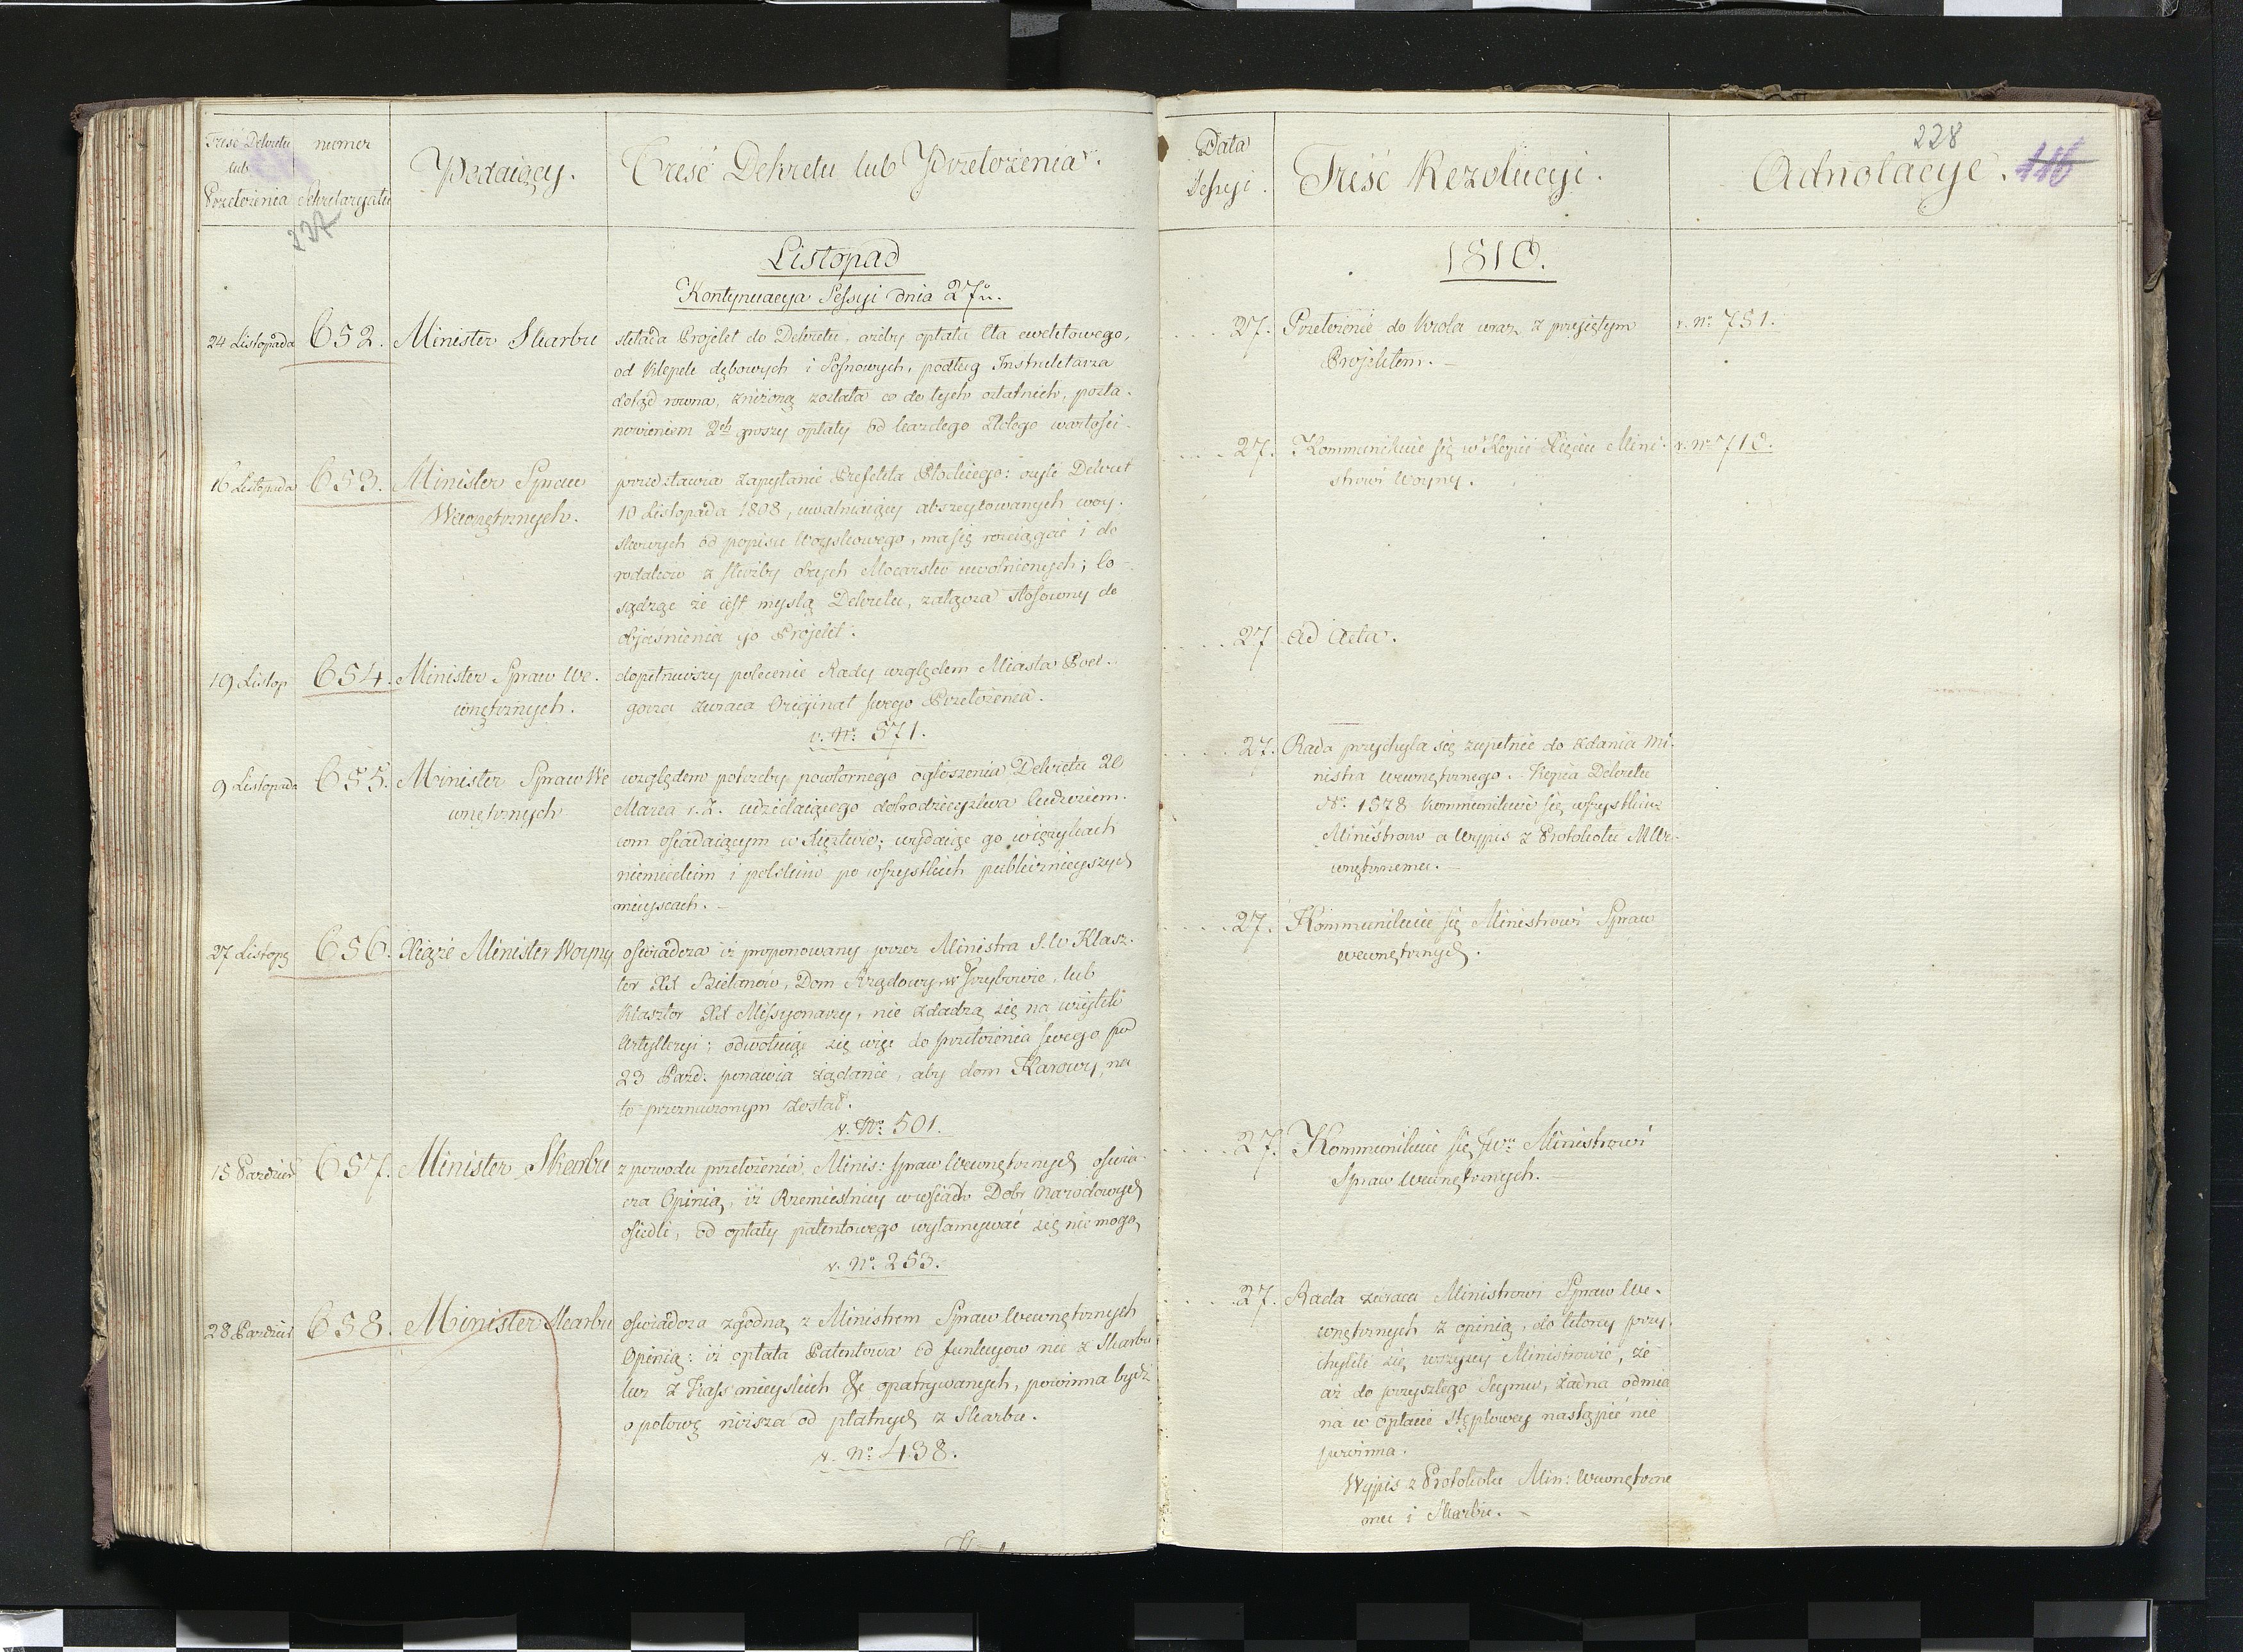 Treść Dekretu
lub
Przełożenia
numer
Sekretaryatu
227
Podaiący.
Treść Dekretu lub Przełożenia.
Listopad
Kontynuacya Sessyi dnia 27º.
24 Listopada 652. Minister Skarbu
składa Projekt do Dekretu, ażeby opłata Cła ewektowego,
od Klepek dębowych i Sosnowych, podług Instruktarza
dotąd rowna, zniżoną została co do tych ostatnich, posta-
nowieniem 2ch groszy opłaty od każdego złotego wartości.
16 Listopada 653. Minister Spraw
Wewnętrznych.
przedstawia zapytanie Prefekta Płockiego: czyli Dekret
10 Listopada 1808, uwalniaiący abszeytowanych woy-
skowych od popisu Woyskowego, ma się rozciągać i do
rodaków z służby obcych Mocarstw uwolnionych; Co
sądząc że iest myslą Dekretu, załącza stosowny do
obiaśnienia go Projekt.
19 Listop 654. Minister Spraw We-
wnętrznych.
dopełniwszy polecenie Rady względem Miasta Pod-
gorza zwraca Oryginał swego Przełożenia.
v. Nº 571.
9 Listopada 655. Minister Spraw We
wnętrznych
względem potrzeby powtornego ogłoszenia Dekretu 20
Marca r. z. udzielaiącego dobrodzieystwa Cudzoziem-
com osiadaiącym w Xięztwie; wydaiąc go w ięzykach
niemieckim i polskim po wszystkich publicznieyszych
mieyscach.
27 Listopa 656. Xiąże Minister Woyny
oświadcza iż proponowany przez Ministra S. W Klasz-
tor XX Bielanów, Dom Rządowy w Grzybowie, lub
Klasztor XX Missyonarzy, nie zdadzą się na użytek
Artylleryi; odwołuiąc się więc do przełożenia swego pod
23 Pazd: ponawia żądanie, aby dom Karowy, na
to przeznaczonym został.
v. Nº 501.
15 Pazdzier 657. Minister Skarbu
z powodu przełożenia Minis: Spraw Wewnętrznych oświa-
cza Opinią, iż Rzemieslnicy w wsiach Dobr Narodowych
osiedli, od opłaty patentowego wyłamywać się nie mogą
v. Nº 253.
28 Pazdzier 658. Minister Skarbu
oświadcza zgodną z Ministrem Spraw Wewnętrznych
Opinią: iż opłata Patentowa od funkcyow nie z Skarbu
lecz z Kass mieyskich &c opatrywanych, powinna bydź
o połowę niższa od płatnych z Skarbu.
v. Nº 438.
Data
Sessyi.
Treść Rezolucyi.
Adnotacye.
228
116
1810.
27. Przełożenie do Krola wraz z przyiętym
Projektem.
v. Nº 751.
27. Kommunikuie się w Kopii Xięciu Mini-
strowi Woyny.
v. Nº 710.
27 Ad Acta.
27. Rada przychyla się zupełnie do zdania Mi-
nistra wewnętrznego. Kopia Dekretu
Nº 1578 kommunikuie się wszystkim
Ministrom a Wypis z Protokołu M We-
wnętrznemu.
27. Kommunikuie się Ministrowi Spraw
wewnętrznych.
27. Kommunikuie się Ministrowi
Spraw Wewnętrznych.
27. Rada zwraca Ministrowi Spraw We-
wnętrznych z opinią, do ktorey przy-
chylili się wszyscy Ministrowie, że
aż do przyszłego Seymu, żadna odmia
na w opłacie stęplowey nastąpić nie
powinna.
Wypis z Protokołu Min: Wewnętrzne
mu i Skarbu.